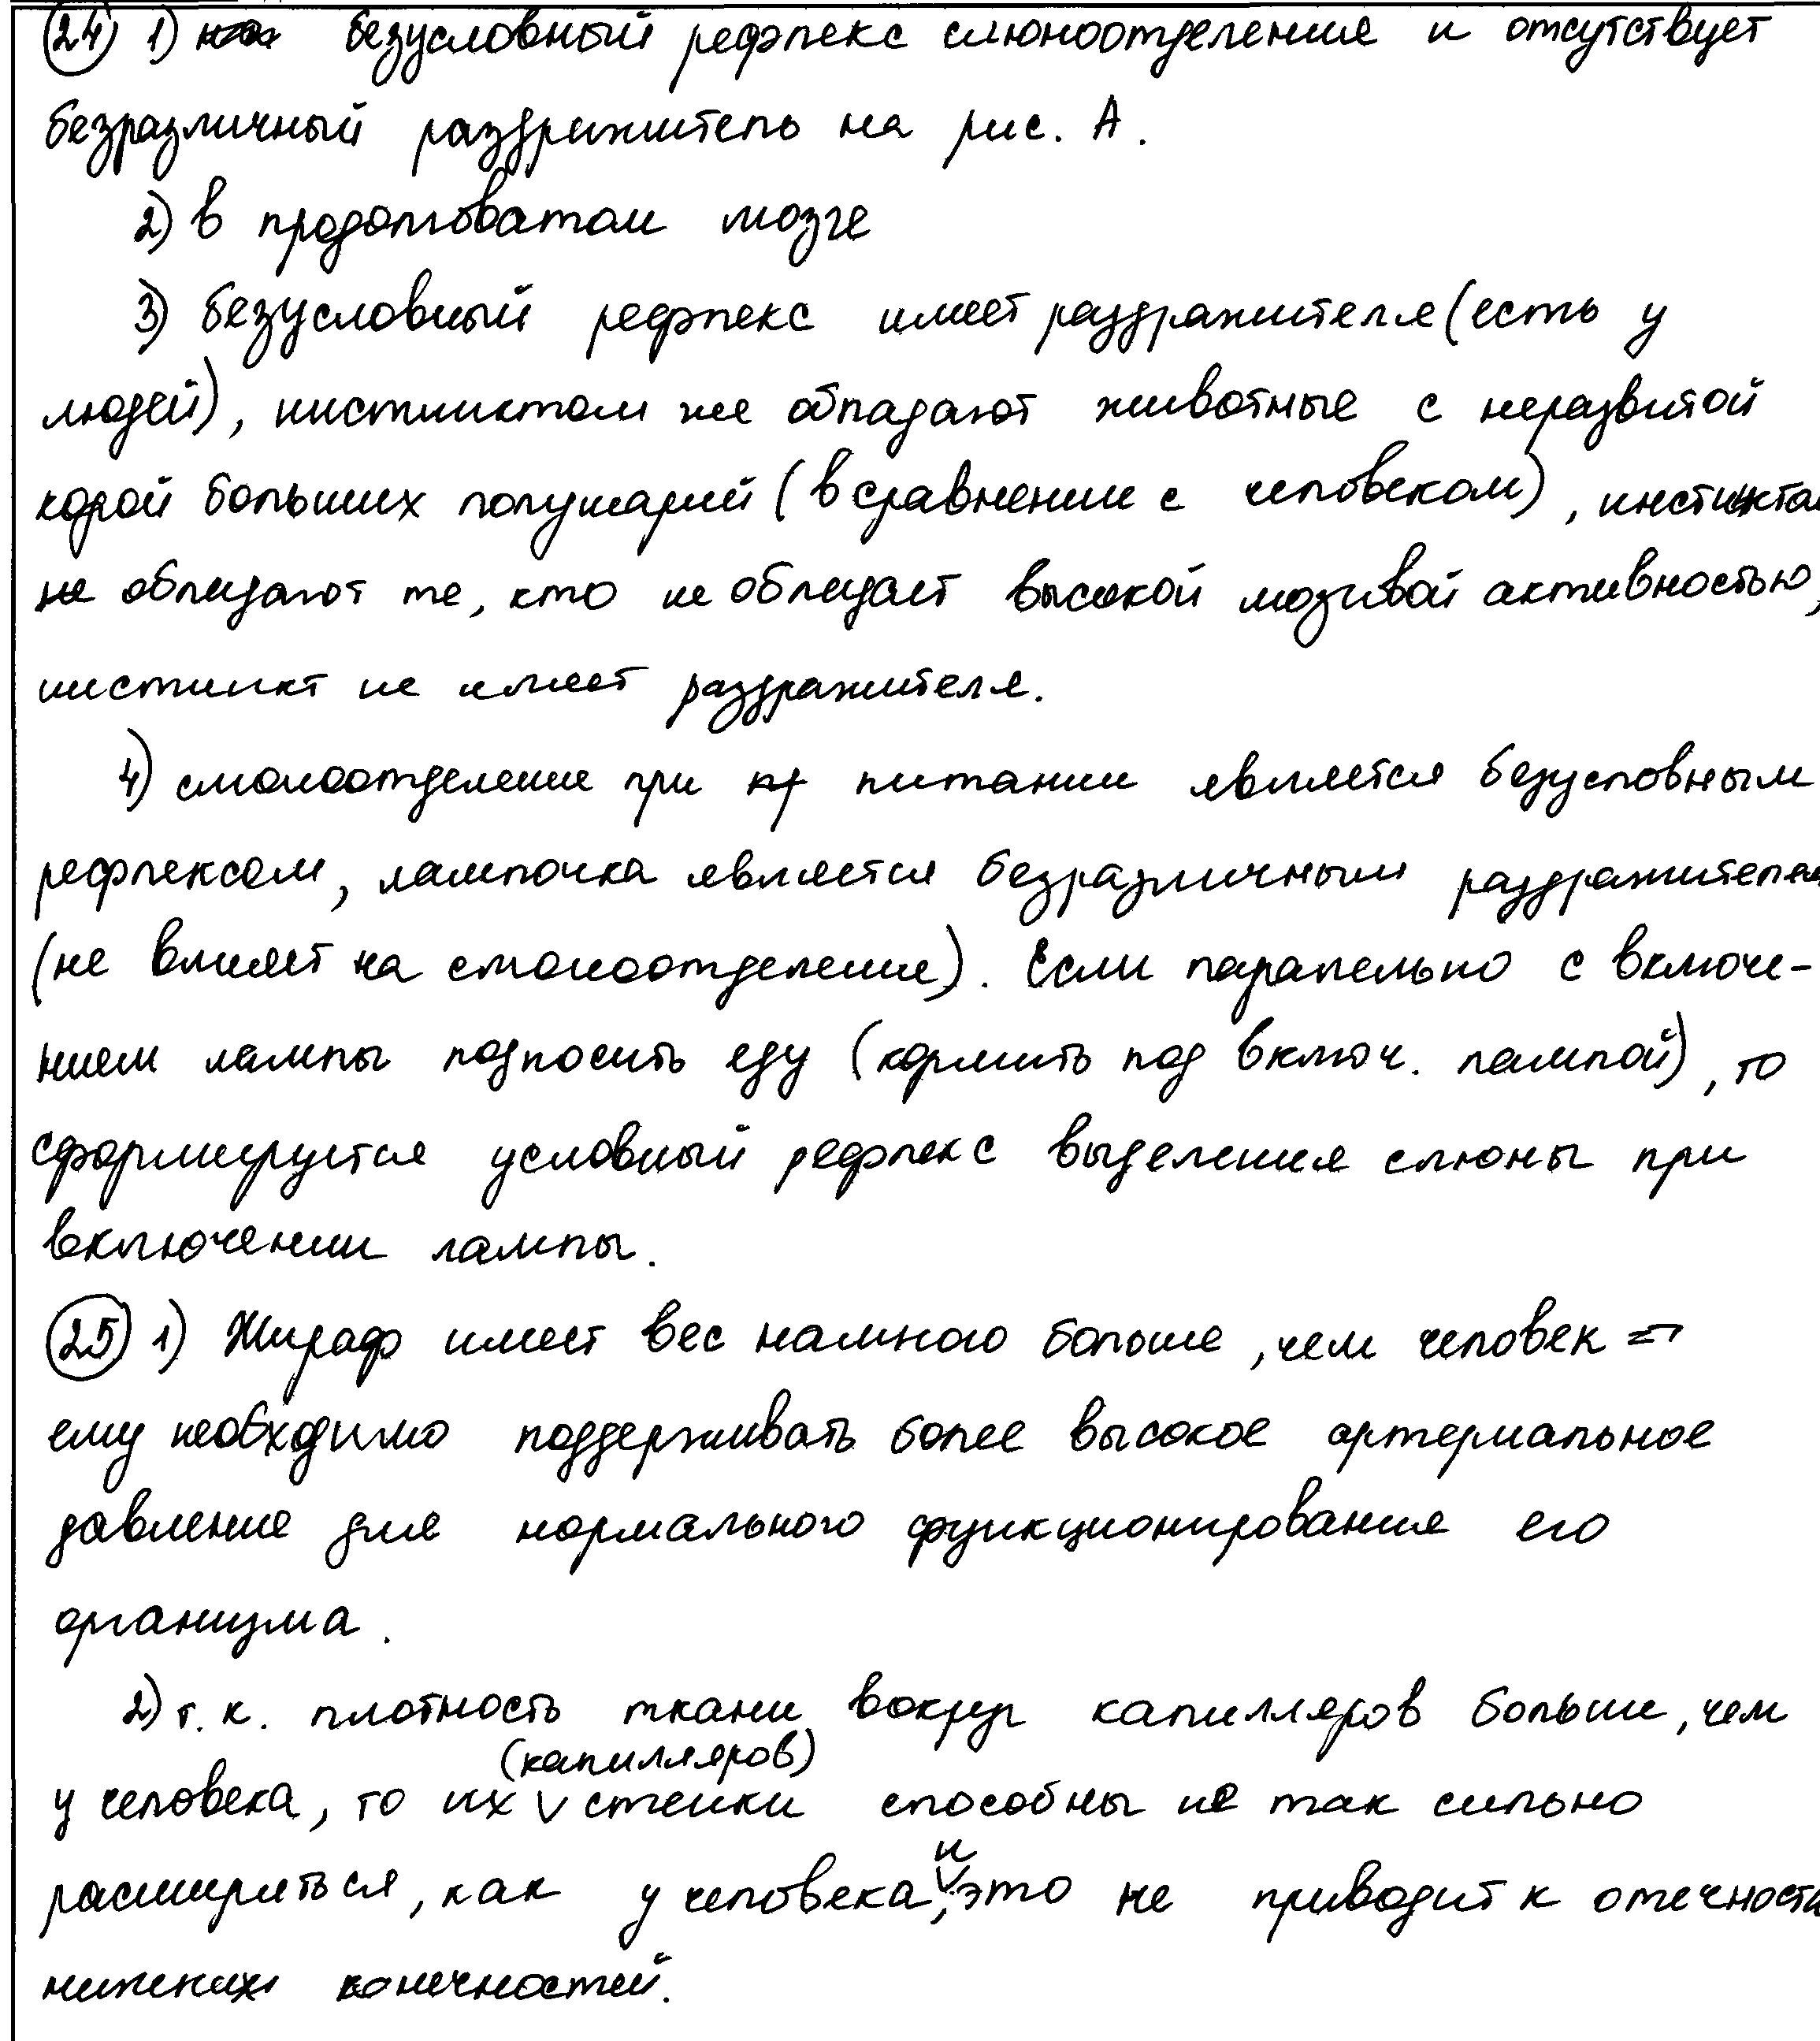 24) 1) безусловный рефлекс слюноотделение и отсутствует
безразличный раздражитель на рис. А.
2) в продолговатом мозге
3) безусловный рефлекс имеет раздражителя (есть у
людей), инстинктом же обладают животные с неразвитой
корой больших полушарий (в сравнении с человеком), инстинктом
не обладают те, кто не обладает высокой мозговой активностью,
инстинкт не имеет раздражителя.
4) слюноотделение при питании является безусловным
рефлексом, лампочка является безразличным раздражителем
(не влияет на слюноотделение). Если паралельно с включе-
нием лампы подносить еду (кормить под включ. лампой), то
сформируется условный рефлекс выделения слюны при
включении лампы.
25) 1) Жираф имеет вес намного больше, чем человек =>
ему необходимо поддерживать более высокое артериальное
давление для нормального функционирования его
организма.
2) т.к. плотность ткани вокруг капилляров больше, чем
у человека, то их (капилляров) стенки способны не так сильно
расшириться, как у человека, и это не приводит к отечности
нижних конечностей.